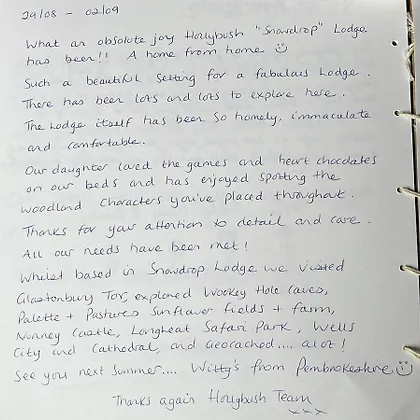 29/08 - 02/09
What an absolute joy Hollybush "Snowdrop" Lodge
has been!! A home from home ☺
Such a beautiful setting for a fabulous Lodge.
There has been lots and lots to explore here.
The Lodge itself has been so homely, immaculate
and comfortable.
Our daughter loved the games and heart chocolates
on our beds and has enjoyed spotting the
woodland characters you've placed throughout.
Thanks for your attention to detail and care.
All our needs have been met!
Whilst based in Snowdrop Lodge we visited
Glastonbury Tor, explored Wookey Hole caves,
Palette + Pastures Sunflower fields + farm,
Nunney Castle, Longleat Safari Park, Wells
City and Cathedral, and Geocached.... alot!
See you next summer.... Witty's from Pembrokeshire ☺
Thanks again Hollybush Team
xxx